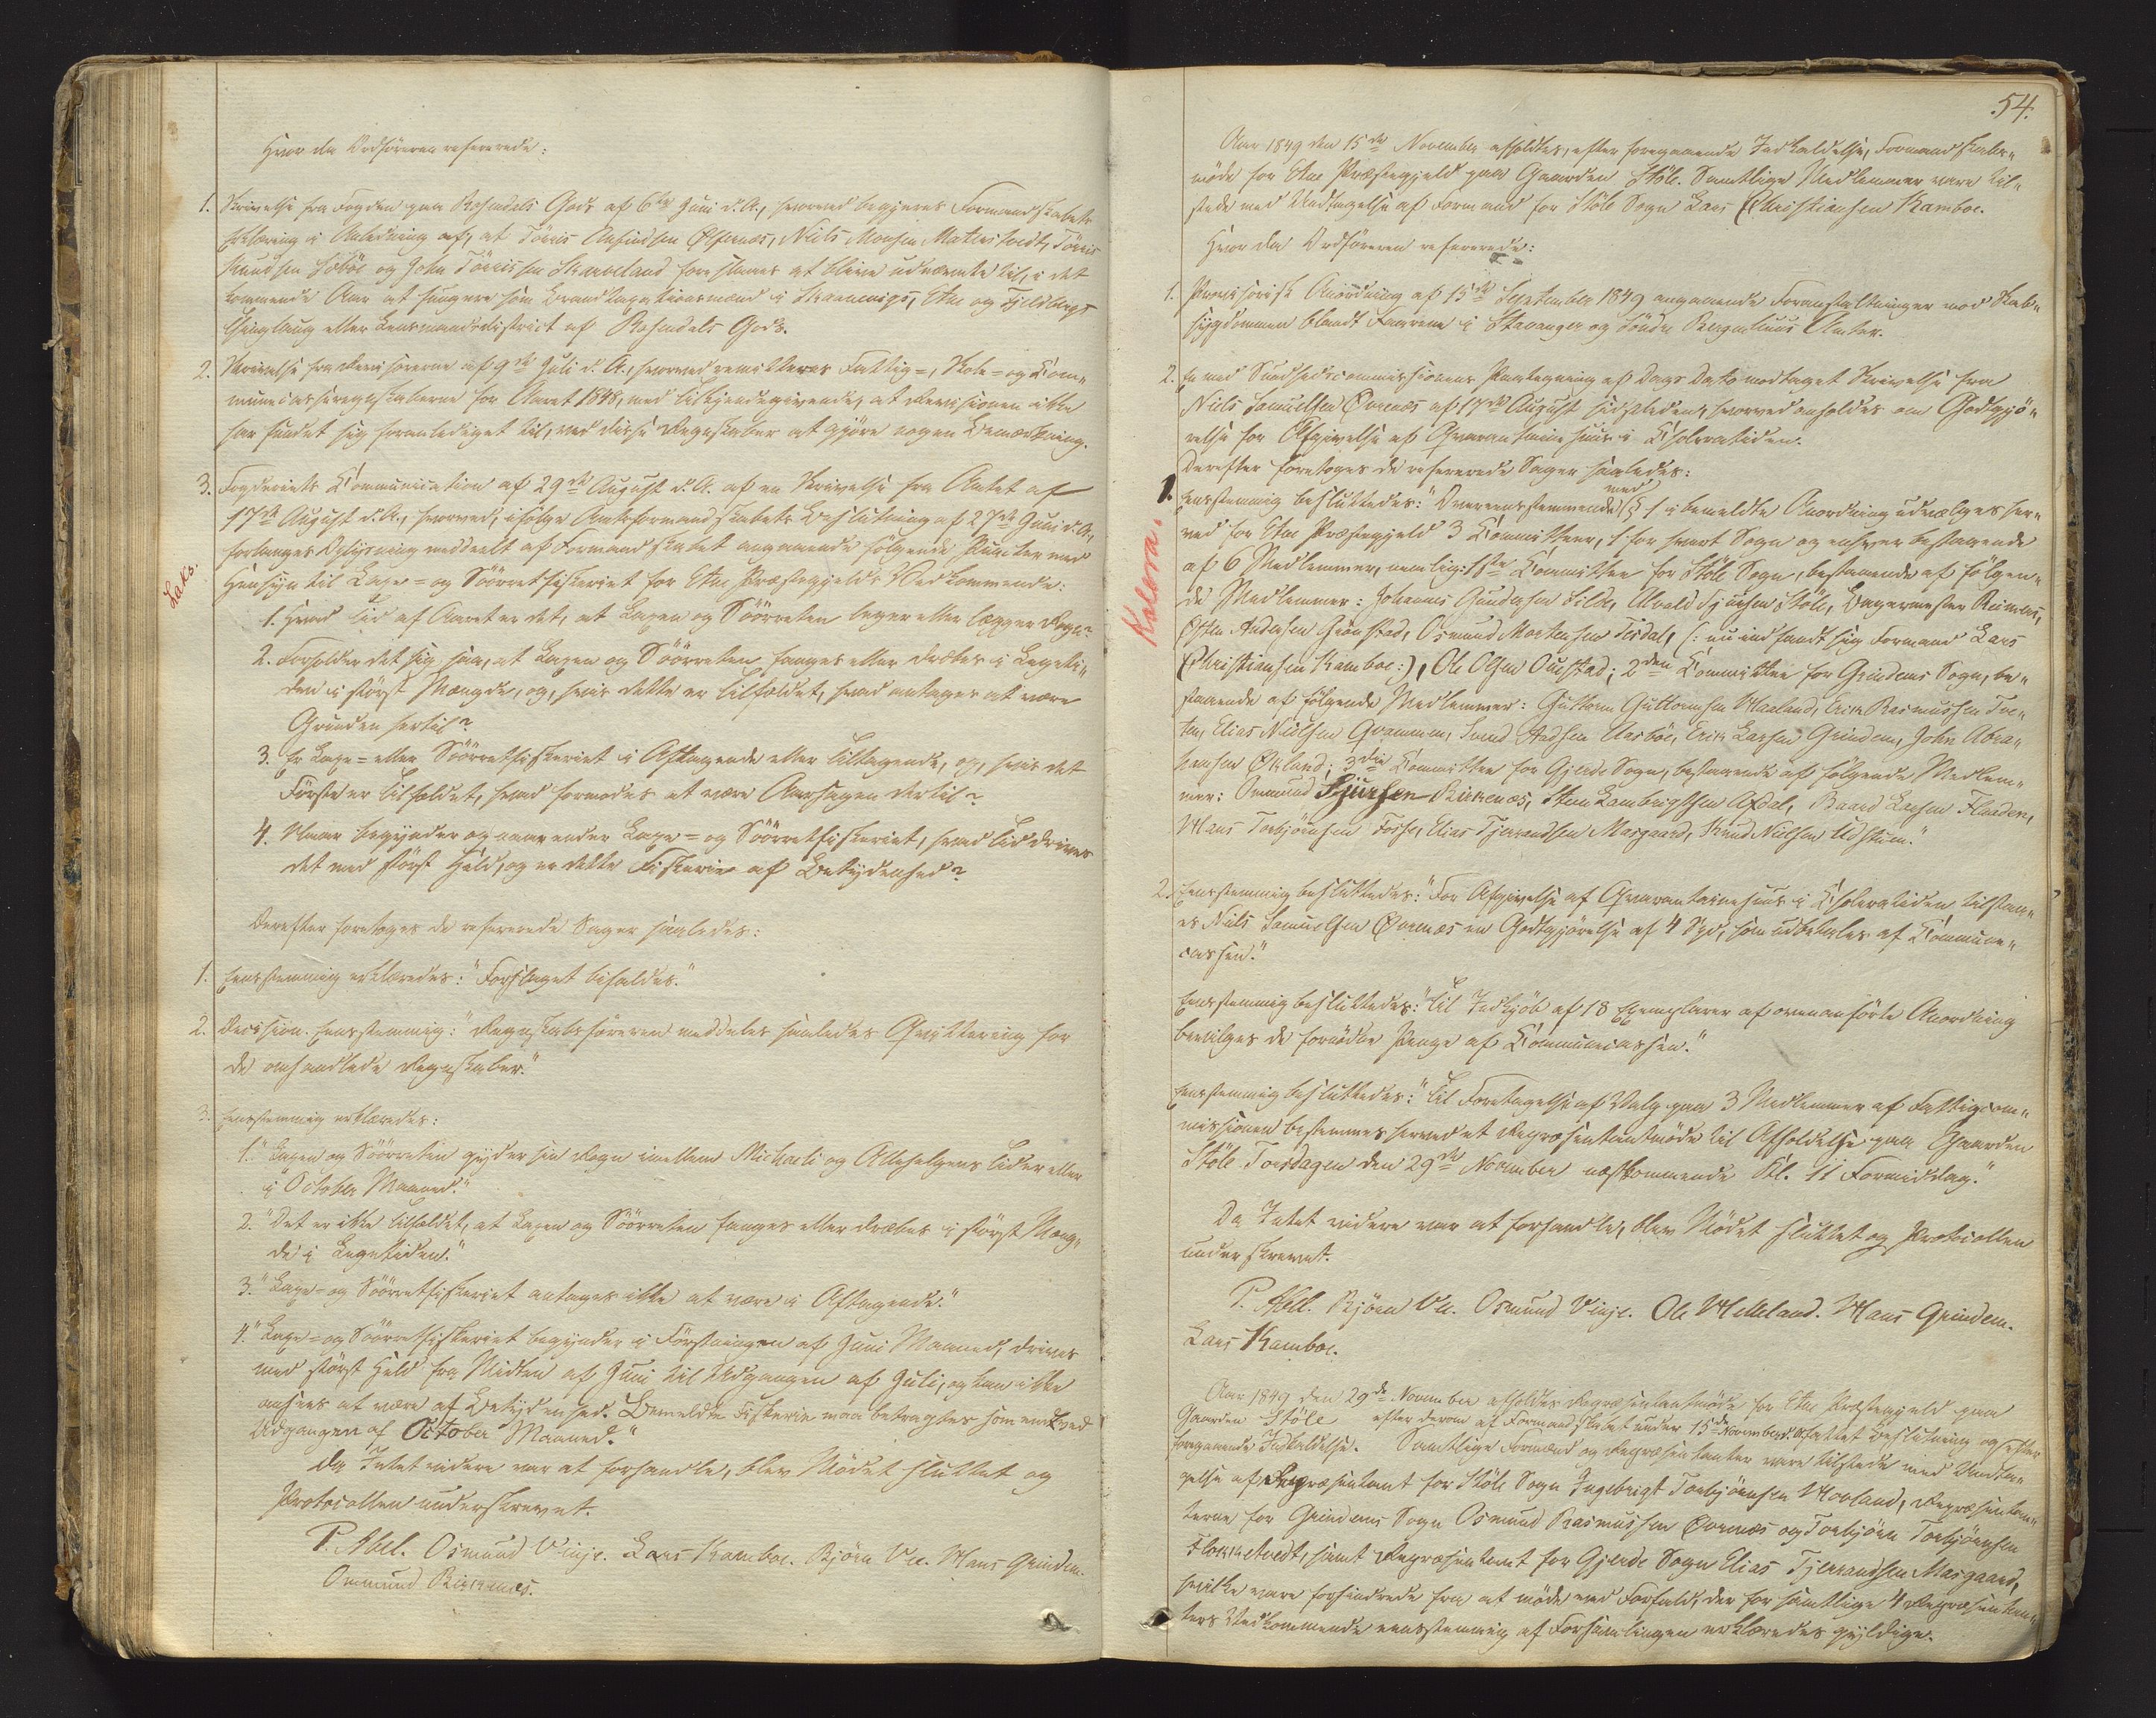 Hvor da Ordføreren refererede:
1. Skrivelse fra Fogden paa Rosendals Gods af 6te Juni d. A., hvorved begjeres Formandskabets
Erklæring i Anledning af, at Tørris Asfindsen Ølfernæs, Niels Monsen Mateststvedt, Tørris
Knudsen Sæbøe og John Tørrissen Skarveland foreslaaes at blive udnævnte til, i det
kommende Aar at fungere som Brandtaxationsmænd i Skaanevigs, Etne og Fjeldbergs
Thinglaug eller Lensmandsdistrict af Rosendals Gods.
2. Skrivelse fra Revisorerne af 9de Juli d. A., hvorved remitteres Fattig-, Skole- og Com„
muneeasseregnskaberne for Aaret 1848, med tilkjendegivende, at Revisionen ikke
har fundet sig foranlediget til, ved disse Regnskaber at gjøre nogen Bemærkning.
3. Fogderiets Communication af 29de August d. A. af en Skrivelse fra Amtet af
17de August d. A., hvorved, ifølge Amtsformandskabets Beslutning af 27de Juni d. A.,
forlanges Oplysning meddeelt af Formandskabet angaaende følgende Puncter med
Hensyn til Laxe- og Søørretfiskeriet for Etne Præstegjelds Vedkommende:
Laks.
1. Hvad Tid af Aaret er det, at Laxen og Søørreten leger eller lægger Rogn?
2. Forholder det sig saa, at Laxen og Søørreten fanges eller dræbes i Legeti„
den i størst Mængde, og, hvis dette er Tilfældet, hvad antages at være
Grunden hertil?
3. Er Laxe- eller Søørretfiskeriet i Aftagende eller Tiltagende, og, hvis det
Første er Tilfældet, hvad formodes at være Aarsagen dertil?
4. Naar begynder og naar ender Laxe- og Søørretfiskeriet, hvad Tid drives
det med størst Held, og er dette Fiskerie af Betydenhed?
Derefter foretoges de refererede Sager saaledes:
1. Eensstemmig erklæredes: "Forslaget bifaldes."
2. Decision. Eensstemmig: "Regnskabsføreren meddeles saaledes Qvittering for
de omhandlede Regnskaber."
3. Eensstemmig erklæredes:
1. "Laxen og Søørreten gyder sin Rogn imellem Michaeli og Allehelgens Tider eller
i October Maaned."
2. "Det er ikke Tilfældet, at Laxen og Søørreten fanges eller dræbes i størst Mæng„
de i Legetiden."
3. "Laxe- og Søørretfiskeriet antages ikke at være i Aftagende."
4. "Laxe- og Søørretfiskeriet begynder i Førstningen af Juni Maaned, drives
med størst Held fra Midten af Juni til Udgangen af Juli, og kan ikke
ansees at være af Betydenhed. Bemeldte Fiskerie maa betragtes som endt ved
Udgangen af October Maaned."
Da Intet videre var at forhandle, blev Mødet sluttet og
Protocollen underskrevet.
P. Abel. Osmund Vinje. Lars Kamboe. Bjørn Vee. Hans Grindem.
Ommund Rickenæs.
54.
Aar 1849 den 15de November afholdtes, efter foregaaende Indkaldelse, Formandskabs„
møde for Etne Præstegjeld paa Gaarden Støle. Samtlige Medlemmer vare til„
stede med Undtagelse af Formand for Støle Sogn Lars Christiansen Kamboe.
Hvor da Ordføreren refererede:
1. Provisorisk Anordning af 15de September 1849 angaaende Foranstaltninger mod Skab„
sygdommen blandt Faarene i Stavanger og Søndre Bergenhuus Amter.
2. En med Sundhedscommissionens Paategning af Dags Dato modtaget Skrivelse fra
Niels Samuelsen Øvrenæs af 17de August sidstleden, hvorved anholdes om Godtgjø„
relse for Afgivelse af Qvarantainehuus i Choleratiden.
Derefter foretoges de refererede Sager saaledes:
Kolera.
1. Eensstemmig besluttedes: "Overeensstemmende med § 1 i bemeldte Anordning udvælges her„
ved for Etne Præstegjeld 3 Committeer, 1 for hvert Sogn og enhver bestaaende
af 6 Medlemmer, nemlig: 1ste Committee for Støle Sogn, bestaaende af følgen„
de Medlemmer: Johannes Gundersen Silde, Amald Sjursen Støle, Bagermester Reimers,
Østen Andersen Grønstad, Osmund Mortensen Tesdal, (: nu indfandt sig Formand Lars
Christiansen Kamboe:), Ole Olsen Ouestad; 2den Committee for Grindems Sogn, be„
staaende af følgende Medlemmer: Guttorm Guttormsen Haaland, Erik Rasmussen Tve„
ten, Elias Nielsen Qvammen, Svend Aadsen Aarbøe, Erik Larsen Grindem, John Abra„
hamsen Økland; 3die Committee for Gjerde Sogn, bestaaende af følgende Medlem„
mer: Ommund Sjursen Rickenæs, Sten Lambrigtsen Axdal, Baard Larsen Flaaden,
Hans Torbjørnsen Fosse, Elias Tjerandsen Masgaard, Knud Nielsen Udstrøm."
2. Eensstemmig besluttedes: "For Afgivelse af Qvarantainehuus i Choleratiden tilstaa„
es Niels Samuelsen Øvrenæs en Godtgjørelse af 4 Spd, som udbetales af Commune„
cassen."
Eensstemmig besluttedes: "Til Indkjøb af 18 Exemplarer af ovenanførte Anordning
bevilges de fornødne Penge af Communecassen."
Eensstemmig besluttedes: "Til Foretagelse af Valg paa 3 Medlemmer af Fattigcom„
missionen bestemmes herved et Repræsentantmøde til Afholdelse paa Gaarden
Støle Torsdagen den 29de November næstkommende Kl. 11 Formiddag."
Da Intet videre var at forhandle, blev Mødet sluttet og Protocollen
underskrevet.
P. Abel. Bjørn Vee. Osmund Vinje. Ole Helleland. Hans Grindem.
Lars Kamboe.
Aar 1849 den 29de November afholdtes Repræsentantmøde for Etne Præstegjeld paa
Gaarden Støle efter derom af Formandskabet under 15de November d. A. fattet Beslutning og efter
foregaaende Indkaldelse. Samtlige Formænd og Repræsentanter vare tilstede med Undta„
gelse af Repræsentant for Støle Sogn Ingebrigt Torbjørnsen Hovland, Repræsentan„
terne for Grindems Sogn Osmund Rasmussen Øvrenæs og Torbjørn Torbjørnsen
Flokketvedt, samt Repræsentant for Gjerde Sogn Elias Tjerandsen Masgaard,
hvilke vare forhindrede fra at møde ved Forfald, der for samtlige 4 Repræsentan„
ters Vedkommende eensstemmig af Forsamlingen erklæredes gyldige.